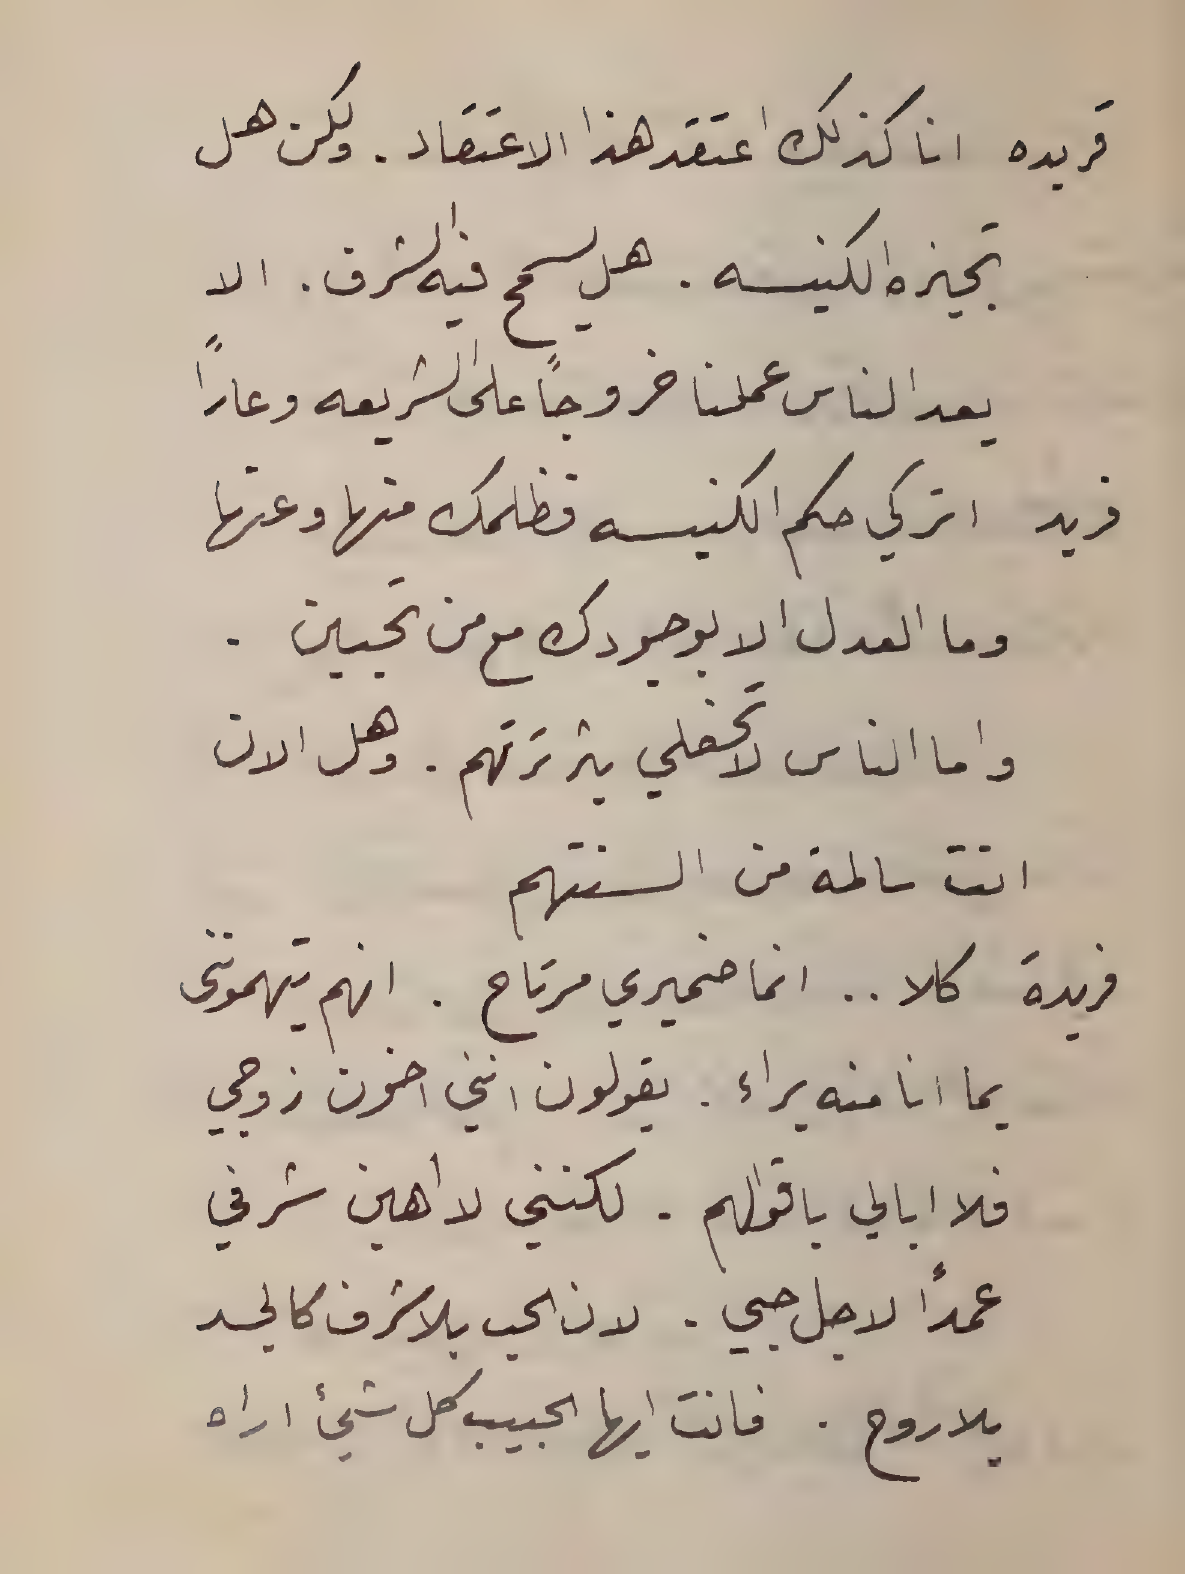 فريده انا كذلك اعتقد هذا الاعتقاد . ولكن هل
تجيزه الكنيسه . هل يسمح فيه الشرف . الا
يعد الناس عملنا خروجًا على الشريعه وعارًا
فريد اتركي حكم الكنيسه فظلمك منها وعنها
وما العدل الا بوجودك مع من تحبين .
واما الناس لا تحفلي بثرثرتهم . وهل الان
انت سالمة من السنتهم
فريدة كلا .. انما ضميري مرتاح . انهم يتهمونني
بما انا منه براء . يقولون انني اخون زوجي
فلا ابالي باقوالهم . لكنني لا اهين شرفي
عمدًا لاجل حبي . لان الحب بلا شرف كالجسد
بلا روح . فانت ايها الحبيب كل شيئ اراه